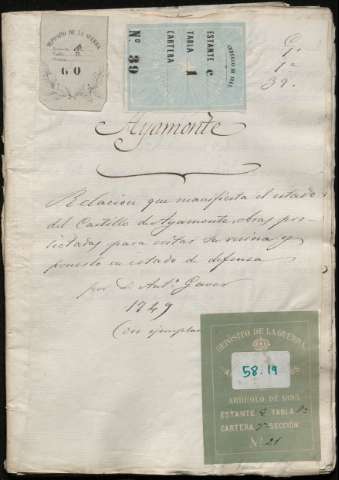 DEPÓSITO DE LA GUERRA
60
ESTANTE e
TABLA 1
CARTERA
Nº 39
C.
1ª
39.
Ayamonte
Relacion que manifiesta el estado
del Castillo de Ayamonte, obras pro-
iectadas para evitar su ruina y
ponerlo en estado de defensa
por D. Antº Gaver
1749
Con ejemplar
DEPÓSITO DE LA GUERRA
58.19
ARREGLO DE 1883
ESTANTE TABLA
CARTERA SECCIÓN
Nº 21